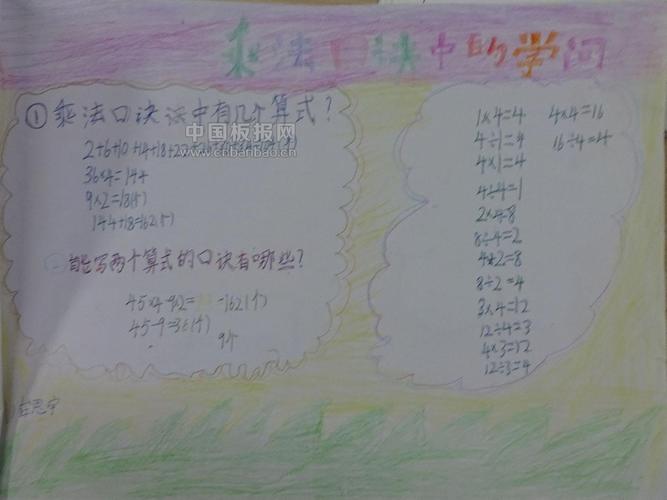 乘法口诀中的学问
①乘法口诀法中有几个算式?
中国板报网
www.cnbanbao.cn
2+6+10+14+18+22
36×4=144
9×2=18(个)
144+18=162(个)
能写两个算式的口诀有哪些?
45×4-9×2= =162(个)
45-9=36(个)
9个
1×4=4
4÷1=4
4×1=4
4÷4=1
2×4=8
8÷4=2
4×2=8
8÷2=4
3×4=12
12÷4=3
4×3=12
12÷3=4
4×4=16
16÷4=4